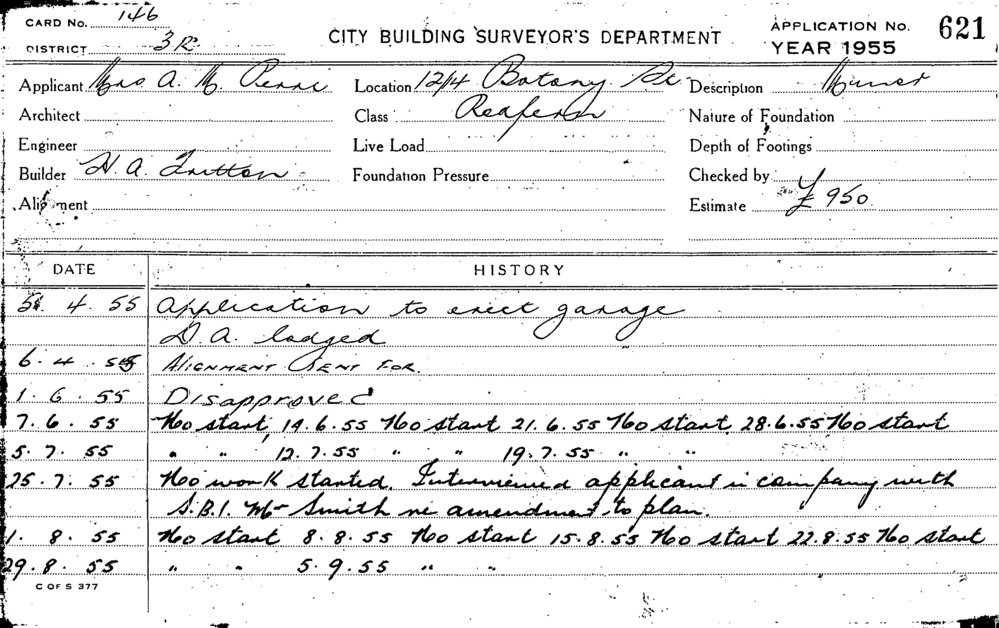 CARD No. 146
DISTRICT 3R
CITY BUILDING SURVEYOR'S DEPARTMENT
APPLICATION No. 621
YEAR 1955
Applicant Mrs A. M. Location 12/4 Botany St Description Minor
Architect Class Redfern Nature of Foundation
Engineer Live Load Depth of Footings
Builder H. A. Fritton Foundation Pressure Checked by
Alignment Estimate £ 950
DATE HISTORY
5. 4. 55 Application to erect garage
D.A. lodged
6. 4. 55 ALIGNMENT SENT FOR.
1. 6. 55 Disapproved
7. 6. 55 No start 14.6.55 No start 21.6.55 No start 28.6.55 No start
5. 7. 55 " " 12.7.55 " " 19.7.55 " "
25. 7. 55 No work started. Interviewed applicant in company with
S.B.I. Mr Smith re amendment to plan.
1. 8. 55 No start 8.8.55 No start 15.8.55 No start 22.8.55 No start
29. 8. 55 " " 5.9.55 " "
C OF S 377